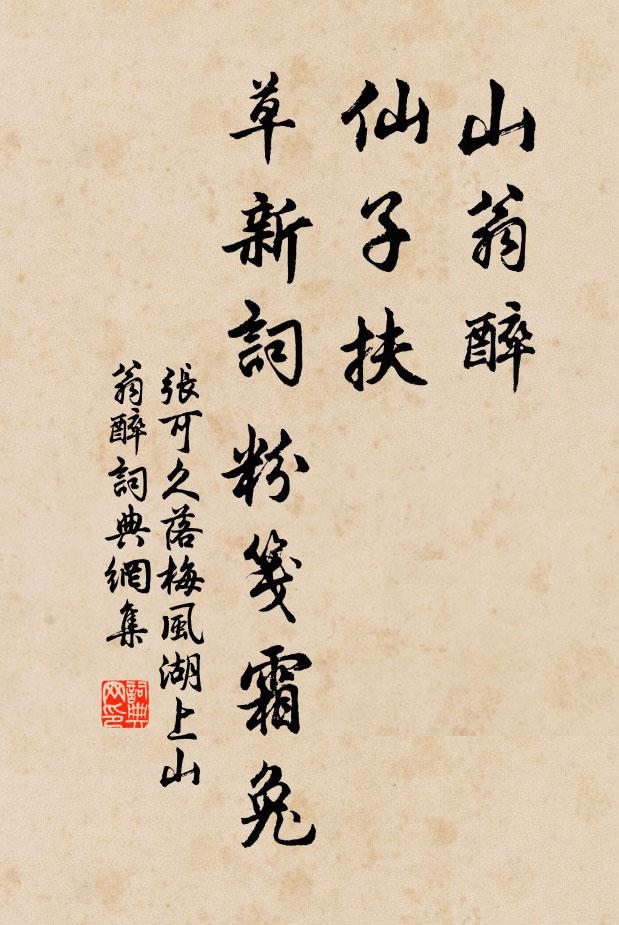 山翁醉
仙子扶
草新詞粉箋霜兔
張可久落梅風湖上山
翁醉詞典網集
詞典
网印